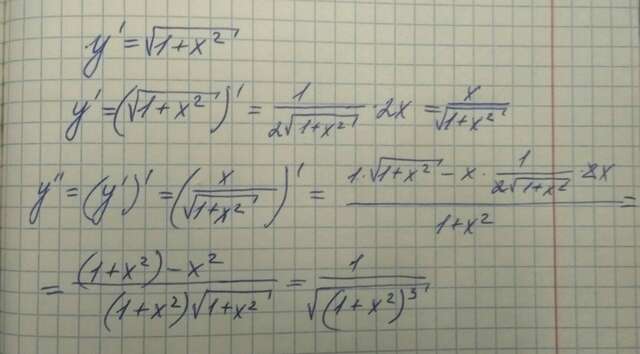 y' = √(1+x²)
y' = (√(1+x²))' = 1/(2√(1+x²)) · 2x = x/√(1+x²)
y'' = (y')' = (x/√(1+x²))' = (1·√(1+x²) − x · 1/(2√(1+x²)) · 2x)/(1+x²) =
= ((1+x²) − x²)/((1+x²)√(1+x²)) = 1/√((1+x²)³)